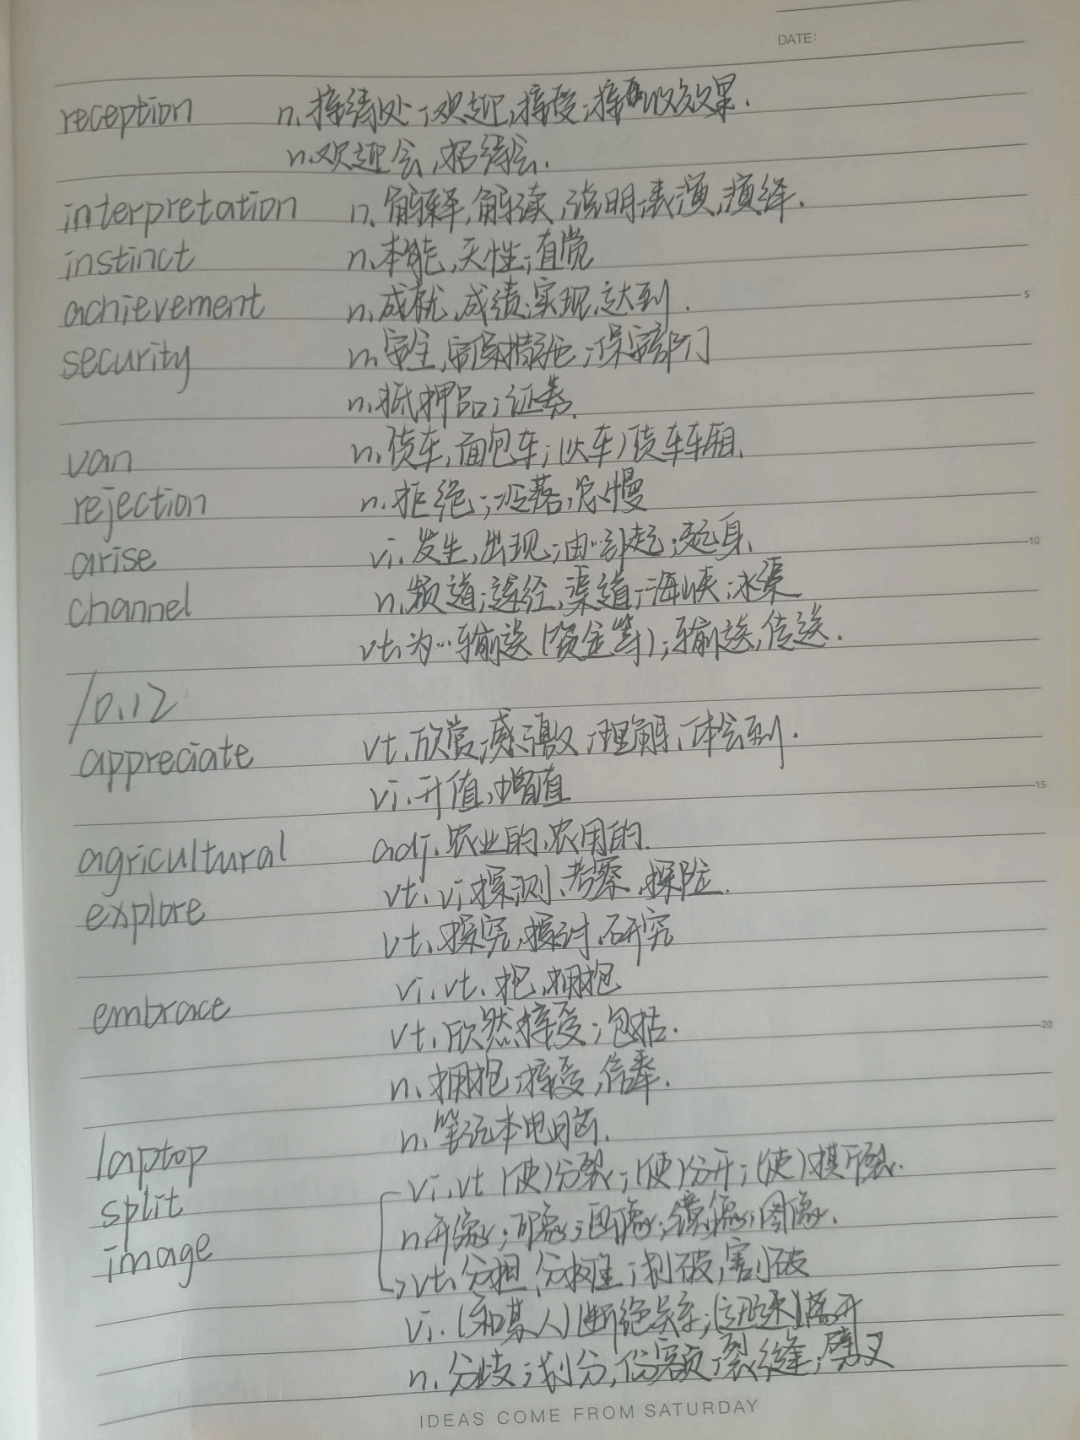 DATE:
reception n. 接待处;欢迎,接受;接收效果.
n.欢迎会,招待会.
interpretation n. 解释,解读,说明;表演,演绎.
instinct n.本能,天性;直觉
achievement n.成就,成绩;实现,达到.
5
security n.安全,安保措施;保安部门
n.抵押品;证券.
van n.货车,面包车;(火车)货车车厢.
rejection n.拒绝;冷落,怠慢
arise vi.发生,出现;由…引起;起身.
10
channel n.频道;途经,渠道;海峡;水渠
vt.为…输送(资金等);输送,传送.
10.12
appreciate vt.欣赏;感激;理解,体会到.
vi.升值,增值
15
agricultural adj.农业的,农用的.
explore vt. vi.探测,考察,探险.
vt.探究,探讨,研究
embrace vi.vt.抱,拥抱
vt.欣然接受;包括.
20
n.拥抱;接受,信奉.
laptop n.笔记本电脑.
split vi.vt (使)分裂;(使)分开;(使)撕裂.
image n.形象;印象;画像;镜像;图像.
vt.分担,分摊;划破,割破
vi.(和某人)断绝关系;(迅速)离开
n.分歧;划分,份额;裂缝;劈叉
IDEAS COME FROM SATURDAY